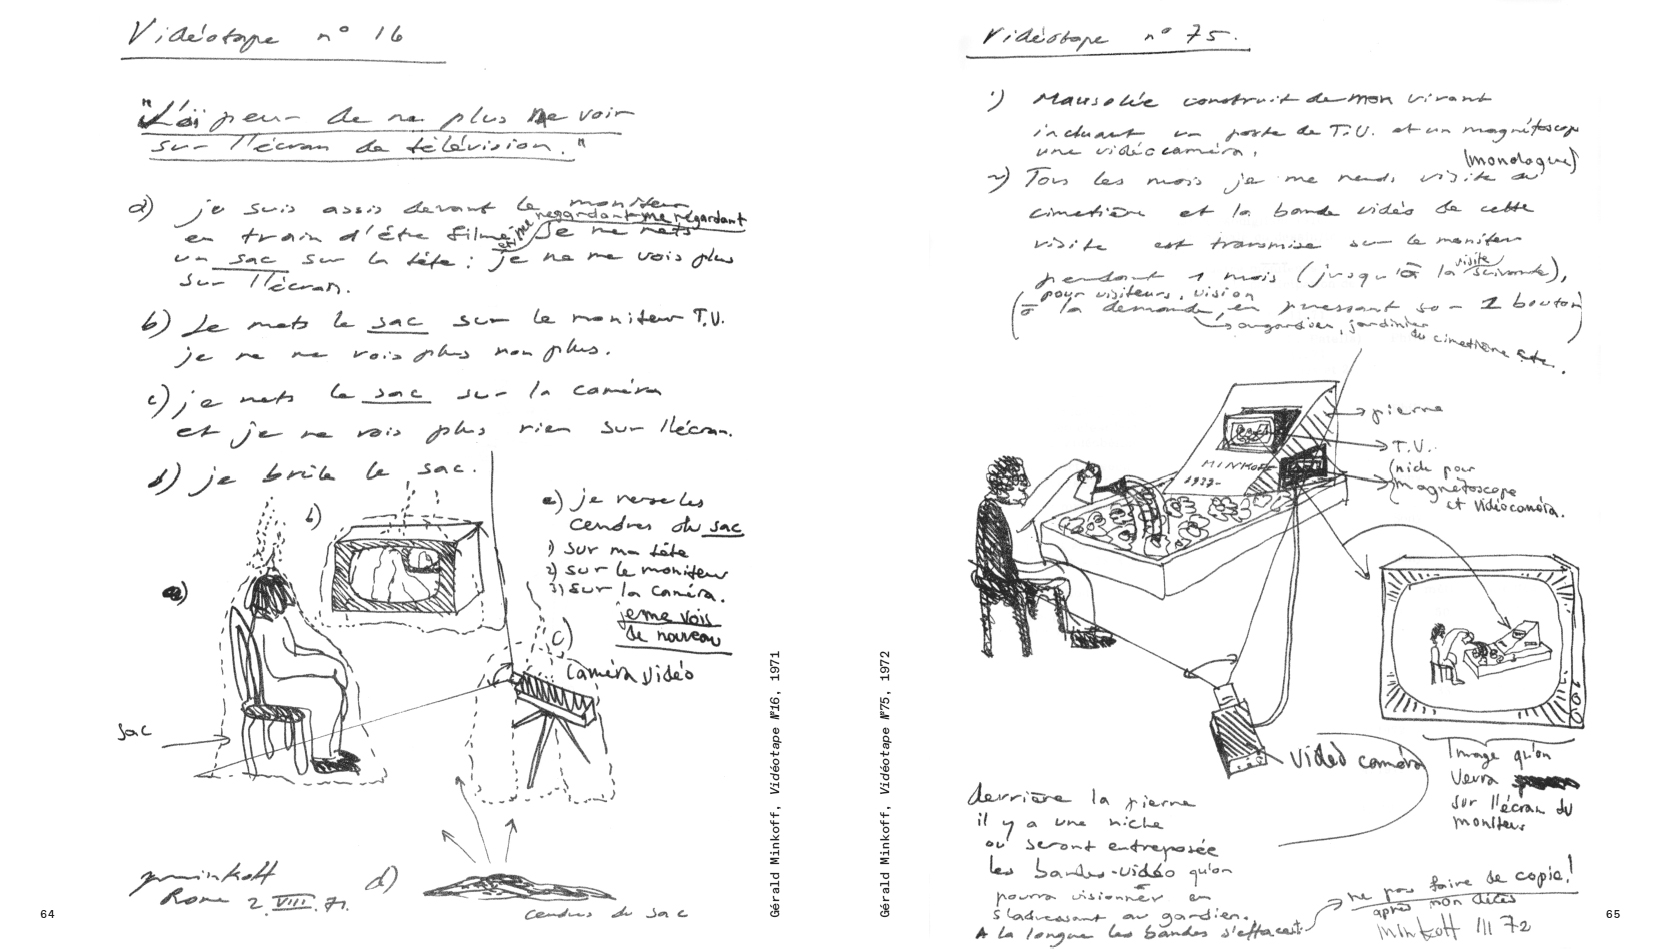 Vidéotape n° 16
"J'ai peur de ne plus me voir
sur l'écran de télévision."
a) je suis assis devant le moniteur
regardant-me regardant
en train d'être filmé. Je me mets
un sac sur la tête : je ne me vois plus
sur l'écran.
b) Je mets le sac sur le moniteur T.V.
je ne me vois plus non plus.
c) je mets le sac sur la caméra
et je ne vois plus rien sur l'écran.
d) je brûle le sac.
e) je verse les
cendres du sac
1) sur ma tête
2) sur le moniteur
3) sur la caméra.
je me vois
de nouveau
b)
a)
c)
caméra vidéo
sac
d)
cendres du sac
gminkoff
Rome 2.VIII.71.
Gérald Minkoff, Vidéotape N°16, 1971
64
Vidéotape n° 75.
1) Mausolée construit de mon vivant
incluant un poste de T.V. et un magnétoscope
une vidéocaméra.
(monologue)
2) Tous les mois je me rends visite au
cimetière et la bande vidéo de cette
visite est transmise sur le moniteur
pendant 1 mois (jusqu'à la visite suivante),
pour visiteurs, vision
(à la demande, en pressant sur 1 bouton)
ou gardien, jardinier
du cimetière etc.
pierre
T.V.
niche pour
magnétoscope
et vidéocaméra.
MINKOFF
1929-
vidéo caméra
Image qu'on
verra
sur l'écran du
moniteur
derrière la pierre
il y a une niche
où seront entreposée
les bandes-vidéo qu'on
pourra visionner en
s'adressant au gardien.
A la longue les bandes s'effacent
ne pas faire de copie!
après mon décès
Minkoff III 72
Gérald Minkoff, Vidéotape N°75, 1972
65